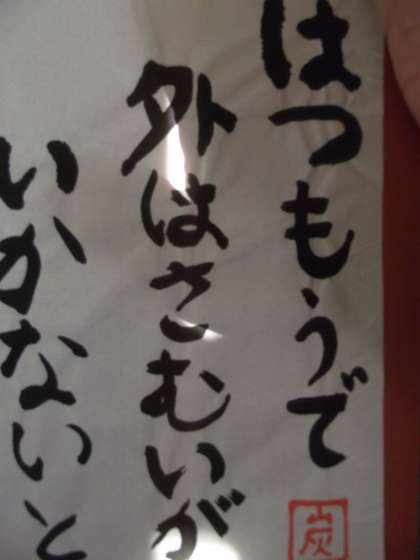 はつもうで
外はさむいが
いかないと
炭